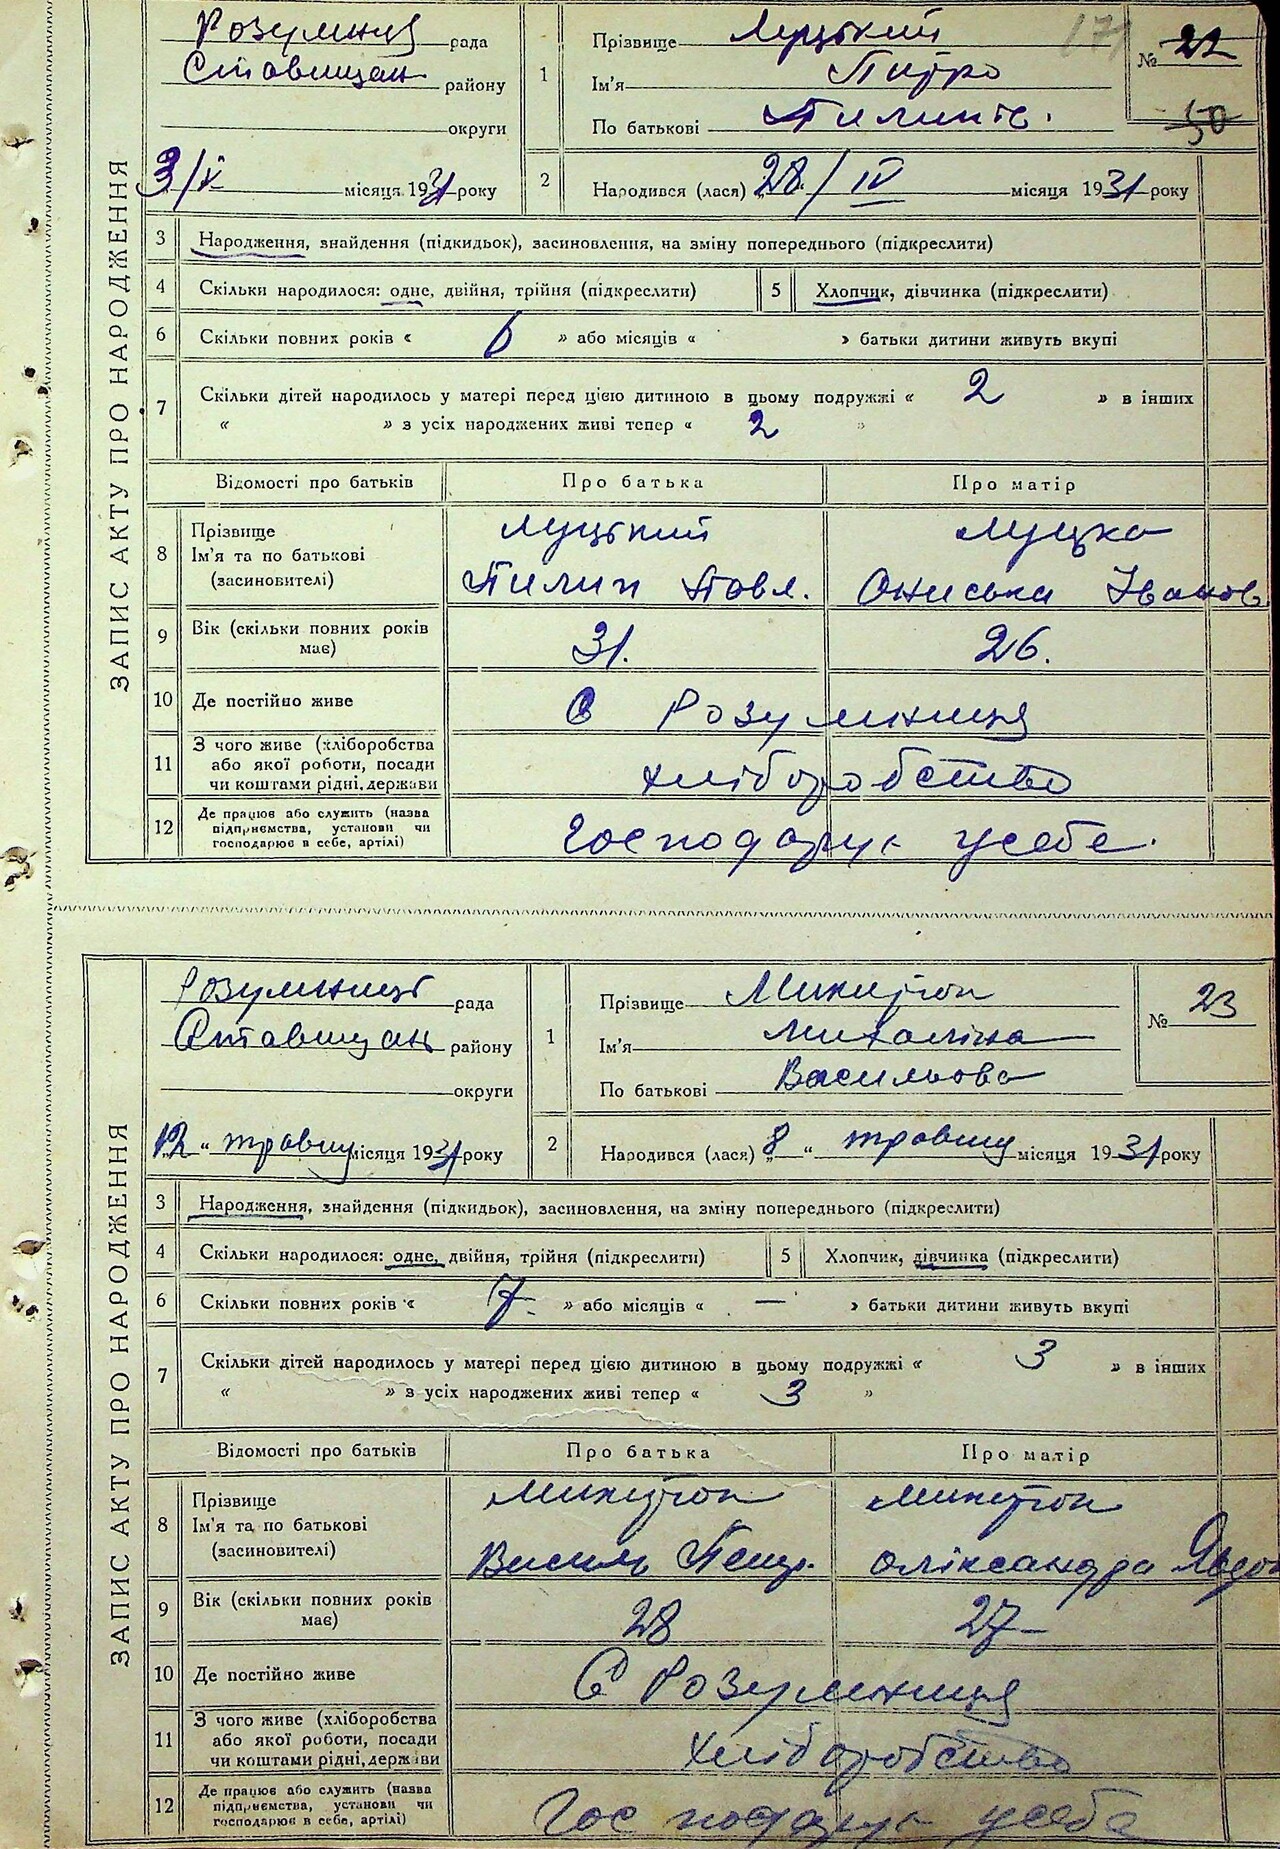 ЗАПИС АКТУ ПРО НАРОДЖЕННЯ
Розумниця рада
Ставищан району
округи
3/V місяця 1931 року
1 Прізвище Луцький
Ім'я Питро
По батькові Пилипів.
№ 22
50
2 Народився (лася) 28/IV місяця 1931 року
3 Народження, знайдення (підкидьок), засиновлення, на зміну попереднього (підкреслити)
4 Скільки народилося: одне, двійня, трійня (підкреслити) 5 Хлопчик, дівчинка (підкреслити)
6 Скільки повних років « 6 » або місяців « » батьки дитини живуть вкупі
7 Скільки дітей народилось у матері перед цією дитиною в цьому подружжі « 2 » в інших
« » з усіх народжених живі тепер « 2 »
Відомості про батьків Про батька Про матір
8 Прізвище Ім'я та по батькові (засиновителі)
Луцький Луцка
Пилип Павл. Ониська Іванов.
9 Вік (скільки повних років має) 31. 26.
10 Де постійно живе С Розумниця
11 З чого живе (хліборобства або якої роботи, посади чи коштами рідні, держави хліборобство
12 Де працює або служить (назва підприємства, установи чи господарює в себе, артілі) Господарує усебе.
ЗАПИС АКТУ ПРО НАРОДЖЕННЯ
Розумниці рада
Ставищан району
округи
12 " травню місяця 1931 року
1 Прізвище Микитюк
Ім'я Михаліна
По батькові Васильова
№ 23
2 Народився (лася) „ 8 " травню місяця 1931 року
3 Народження, знайдення (підкидьок), засиновлення, на зміну попереднього (підкреслити)
4 Скільки народилося: одне, двійня, трійня (підкреслити) 5 Хлопчик, дівчинка (підкреслити)
6 Скільки повних років « 7 » або місяців « — » батьки дитини живуть вкупі
7 Скільки дітей народилось у матері перед цією дитиною в цьому подружжі « 3 » в інших
« » з усіх народжених живі тепер « 3 »
Відомості про батьків Про батька Про матір
8 Прізвище Ім'я та по батькові (засиновителі)
Микитюк Микитюк
Василь Оліксандра
9 Вік (скільки повних років має) 28 27
10 Де постійно живе С Розумниця
11 З чого живе (хліборобства або якої роботи, посади чи коштами рідні, держави хліборобство
12 Де працює або служить (назва підприємства, установи чи господарює в себе, артілі) Господарує усебе